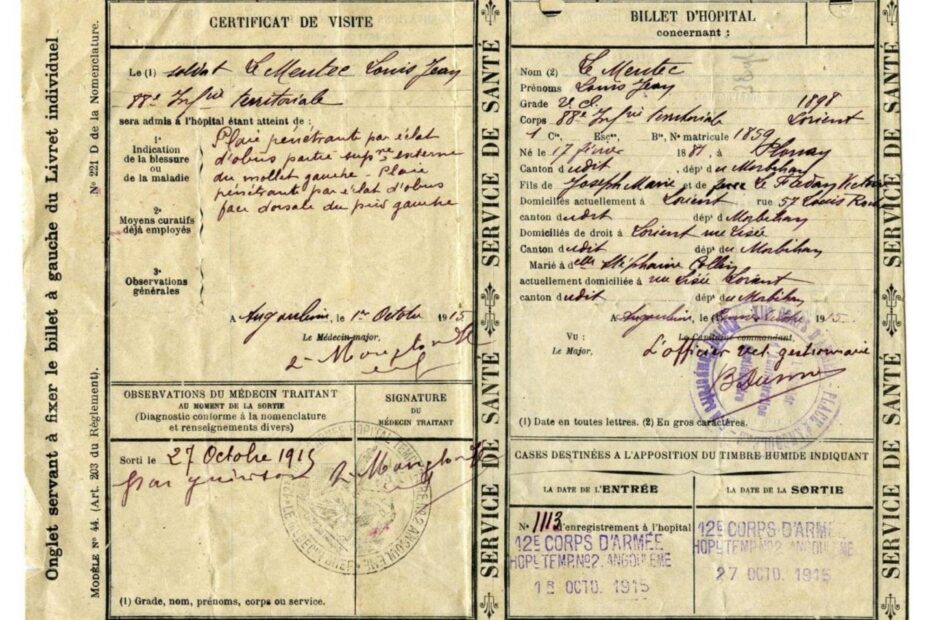 Onglet servant à fixer le billet à gauche du Livret individuel
MODÈLE Nº 44. (Art. 203 du Règlement).
Nº 221 D de la Nomenclature.
CERTIFICAT DE VISITE
Le (1) soldat Le Mentec Louis Jean
88e Infrie territoriale
sera admis à l'hôpital étant atteint de :
1º
Indication
de la blessure
ou de la maladie
Plaie pénétrante par éclat
d'obus partie supre externe
du mollet gauche - Plaie
pénétrante par éclat d'obus
face dorsale du pied gauche
2º
Moyens curatifs
déjà employés
3º
Observations
générales
A Angoulême, le 1er Octobre 1915
Le Médecin-major,
OBSERVATIONS DU MÉDECIN TRAITANT
AU MOMENT DE LA SORTIE
(Diagnostic conforme à la nomenclature
et renseignements divers)
SIGNATURE
DU
MÉDECIN TRAITANT
Sorti le 27 Octobre 1915
par guérison
(1) Grade, nom, prénoms, corps ou service.
SERVICE DE SANTÉ
SERVICE DE SANTÉ
BILLET D'HOPITAL
concernant :
Nom (2) Le Mentec
Prénoms Louis Jean
Grade 2e cl. 1898
Corps 88e Infrie territoriale Lorient
1 Cie, Esc., Bie, Nº matricule 1859
Né le 17 1881, à Plouay
Canton dudit, dépt du Morbihan
Fils de Joseph Marie et de Le
Domiciliés actuellement à Lorient rue 57 Louis
canton dudit dépt du Morbihan
Domiciliés de droit à Lorient rue
Canton dudit dépt du Morbihan
Marié à delle Stéphanie
actuellement domiciliée à rue Lorient
canton dudit dépt du Morbihan
A Angoulême, le (1) Octobre 1915
Vu :
Le Major,
Le Capitaine commandant,
L'officier gestionnaire
(1) Date en toutes lettres. (2) En gros caractères.
CASES DESTINÉES A L'APPOSITION DU TIMBRE HUMIDE INDIQUANT
LA DATE DE L'ENTRÉE
LA DATE DE LA SORTIE
Nº 1113 d'enregistrement à l'hôpital
12E CORPS D'ARMÉE
HOPL TEMP. Nº2. ANGOULÊME
OCTO. 1915
12E CORPS D'ARMÉE
HOPL TEMP. Nº2. ANGOULÊME
27 OCTO. 1915
SERVICE DE SANTÉ
SERVICE DE SANTÉ